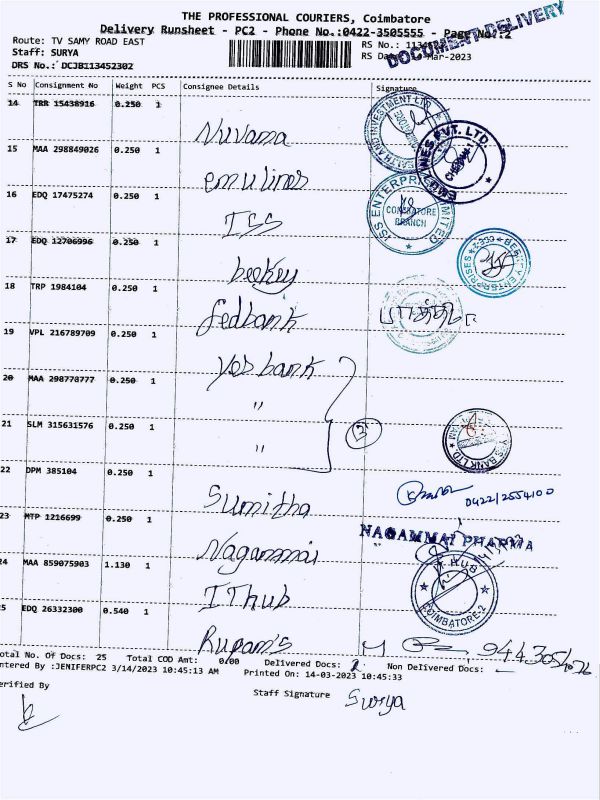 THE PROFESSIONAL COURIERS, Coimbatore
Delivery Runsheet - PC2 - Phone No.:0422-3505555 - Page No.:2
DOCUMENT DELIVERY
Route: TV SAMY ROAD EAST
Staff: SURYA
DRS No.: DCJB113452302
RS No.: 1134
RS Da Mar-2023
S No Consignment No Weight PCS Consignee Details Signature
14 TRR 15438916 0.250 1 Nuvama
15 MAA 298849026 0.250 1 emulines
PVT. LTD. CHENNAI-1
16 EDQ 17475274 0.250 1 ISS
ISS ENTERPRI LIMITED
COIMBATORE
BRANCH
17 EDQ 12706996 0.250 1 beekey
ENTERPRISES
18 TRP 1984104 0.250 1 fedbank
19 VPL 216789709 0.250 1 Yes bank
20 MAA 298778777 0.250 1 "
21 SLM 315631576 0.250 1 "
YES BANK LTD.
22 DPM 385104 0.250 1 Sumitha
0422/2554100
23 MTP 1216699 0.250 1 Nagammai
NAGAMMAI PHARMA
24 MAA 859075903 1.130 1 IThub
HUB
COIMBATORE-2
5 EDQ 26332300 0.540 1 Rupam's
otal No. Of Docs: 25 Total COD Amt: 0.00 Delivered Docs: Non Delivered Docs:
ntered By :JENIFERPC2 3/14/2023 10:45:13 AM Printed On: 14-03-2023 10:45:33
erified By
Staff Signature Surya